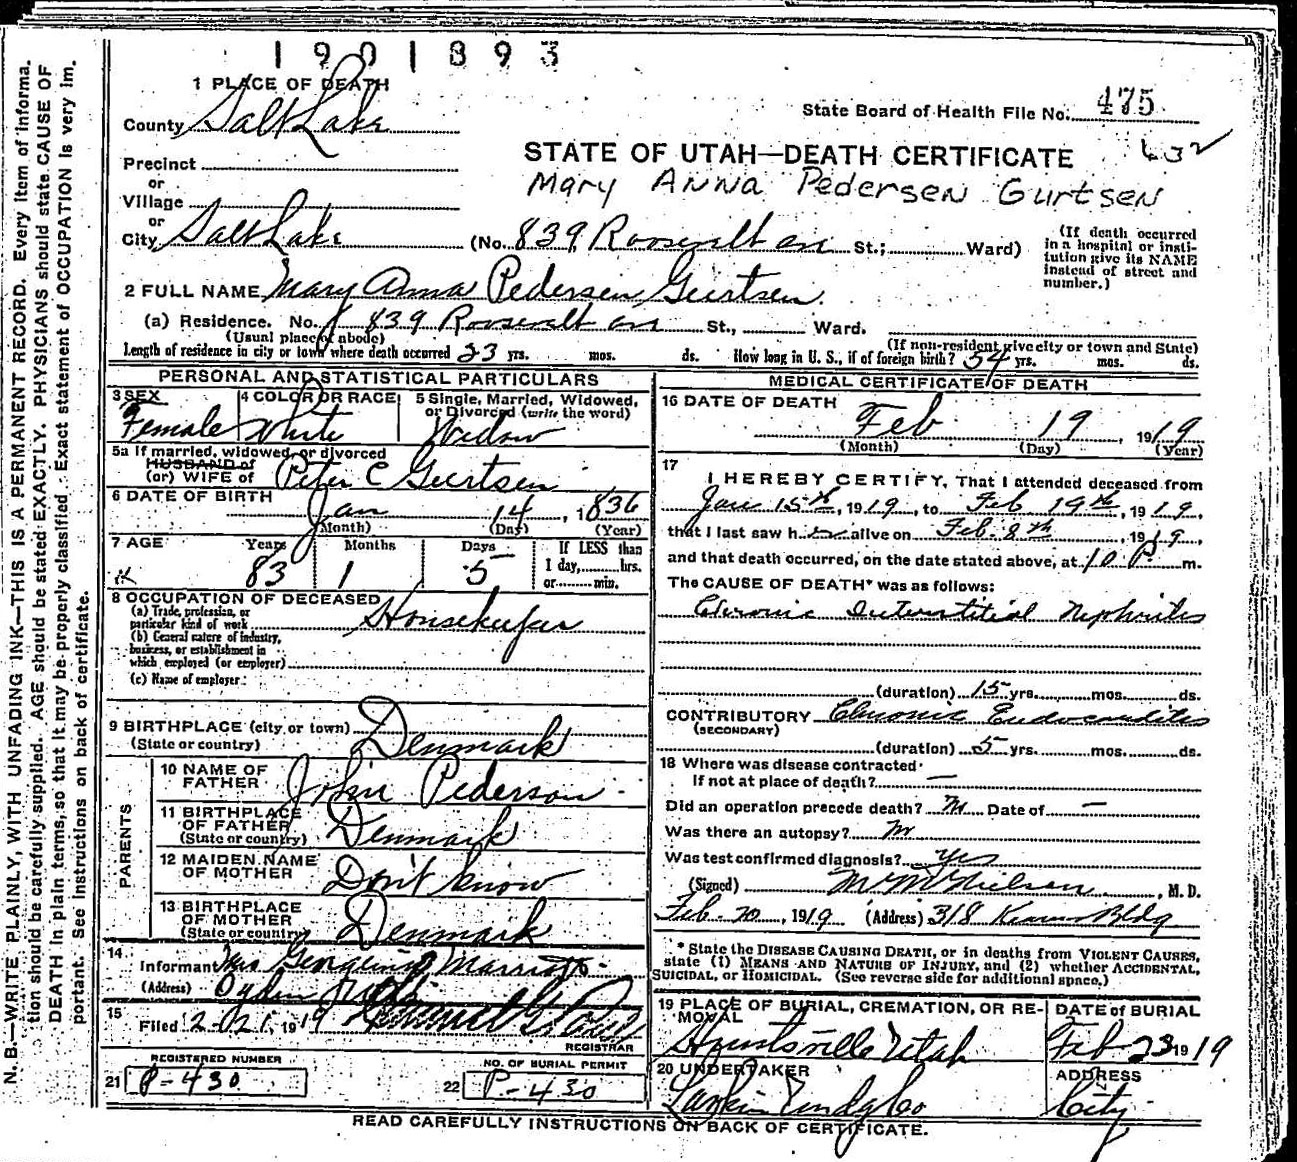 1901893
1 PLACE OF DEATH
County Salt Lake
State Board of Health File No. 475
632
Precinct
or
Village
or
City Salt Lake
STATE OF UTAH—DEATH CERTIFICATE
Mary Anna Pedersen Gurtsen
(No. 839 Roosevelt ave St.; Ward)
(If death occurred
in a hospital or insti-
tution give its NAME
instead of street and
number.)
2 FULL NAME Mary Anna Pedersen Geertsen.
(a) Residence. No. 839 Roosevelt ave St., Ward.
(Usual place of abode)
(If non-resident give city or town and State)
Length of residence in city or town where death occurred 23 yrs. mos. ds. How long in U. S., if of foreign birth? 54 yrs. mos. ds.
PERSONAL AND STATISTICAL PARTICULARS
3 SEX
Female
4 COLOR OR RACE
White
5 Single, Married, Widowed,
or Divorced (write the word)
Widow
5a If married, widowed, or divorced
HUSBAND of
(or) WIFE of Peter C Geertsen
6 DATE OF BIRTH
Jan 14, 1836
(Month) (Day) (Year)
7 AGE Years Months Days
83 1 5
If LESS than
1 day, hrs.
or min.
8 OCCUPATION OF DECEASED
(a) Trade, profession, or
particular kind of work Housekeeper
(b) General nature of industry,
business, or establishment in
which employed (or employer)
(c) Name of employer
9 BIRTHPLACE (city or town) Denmark
(State or country)
PARENTS
10 NAME OF
FATHER John Pederson
11 BIRTHPLACE
OF FATHER Denmark
(State or country)
12 MAIDEN NAME
OF MOTHER Don't know
13 BIRTHPLACE
OF MOTHER Denmark
(State or country)
14
Informant Marriott
(Address) Ogden Utah
15
Filed 2-21, 1919
REGISTRAR
REGISTERED NUMBER
21 P-430
NO. OF BURIAL PERMIT
22 P-430
MEDICAL CERTIFICATE OF DEATH
16 DATE OF DEATH
Feb 19, 1919
(Month) (Day) (Year)
17
I HEREBY CERTIFY, That I attended deceased from
Jan 15th, 1919, to Feb 19th, 1919,
that I last saw her alive on Feb. 8th, 1919,
and that death occurred, on the date stated above, at 10 P m.
The CAUSE OF DEATH* was as follows:
Chronic Interstitial Nephritis
(duration) 15 yrs. mos. ds.
CONTRIBUTORY Chronic Endocarditis
(SECONDARY)
(duration) 5 yrs. mos. ds.
18 Where was disease contracted
If not at place of death? —
Did an operation precede death? No Date of —
Was there an autopsy? No
Was test confirmed diagnosis? Yes
(Signed) M M Nielsen, M. D.
Feb. 20, 1919 (Address) 318 Kearns Bldg
* State the DISEASE CAUSING DEATH, or in deaths from VIOLENT CAUSES,
state (1) MEANS AND NATURE OF INJURY, and (2) whether ACCIDENTAL,
SUICIDAL, or HOMICIDAL. (See reverse side for additional space.)
19 PLACE OF BURIAL, CREMATION, OR RE-
MOVAL
Huntsville Utah
DATE of BURIAL
Feb 23 1919
20 UNDERTAKER
Larkin Undg Co
ADDRESS
City
READ CAREFULLY INSTRUCTIONS ON BACK OF CERTIFICATE.
N. B.—WRITE PLAINLY, WITH UNFADING INK—THIS IS A PERMANENT RECORD. Every item of informa-
tion should be carefully supplied. AGE should be stated EXACTLY. PHYSICIANS should state CAUSE OF
DEATH in plain terms, so that it may be properly classified. Exact statement of OCCUPATION is very im-
portant. See instructions on back of certificate.